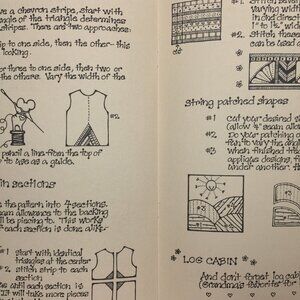 e a chevron stripe, start with
angle of the triangle determines
stripes. There are two approaches:
ip to one side, then the other - this
looking.
or three to one side, then two or
e others. Vary the width of the
#2.
pencil a line from the top of
to use as a guide.
in sections
e the pattern into 4 sections.
eam allowance to the backing
ll be piecing to. This works
each section is done alike.
#1 start with identical
triangles at the center
#2. stitch strip to each
section.
will take more pieces
varying width
in one direct
#2. Stitch these
can be used
String patched shapes
#1 Cut your desired
(allow ¼" seam
#2. Try patching
run to vary the
#3 when finished
applique designs,
under another.
LOG CABIN
And don't forget log cabin
(grandma's favorite for